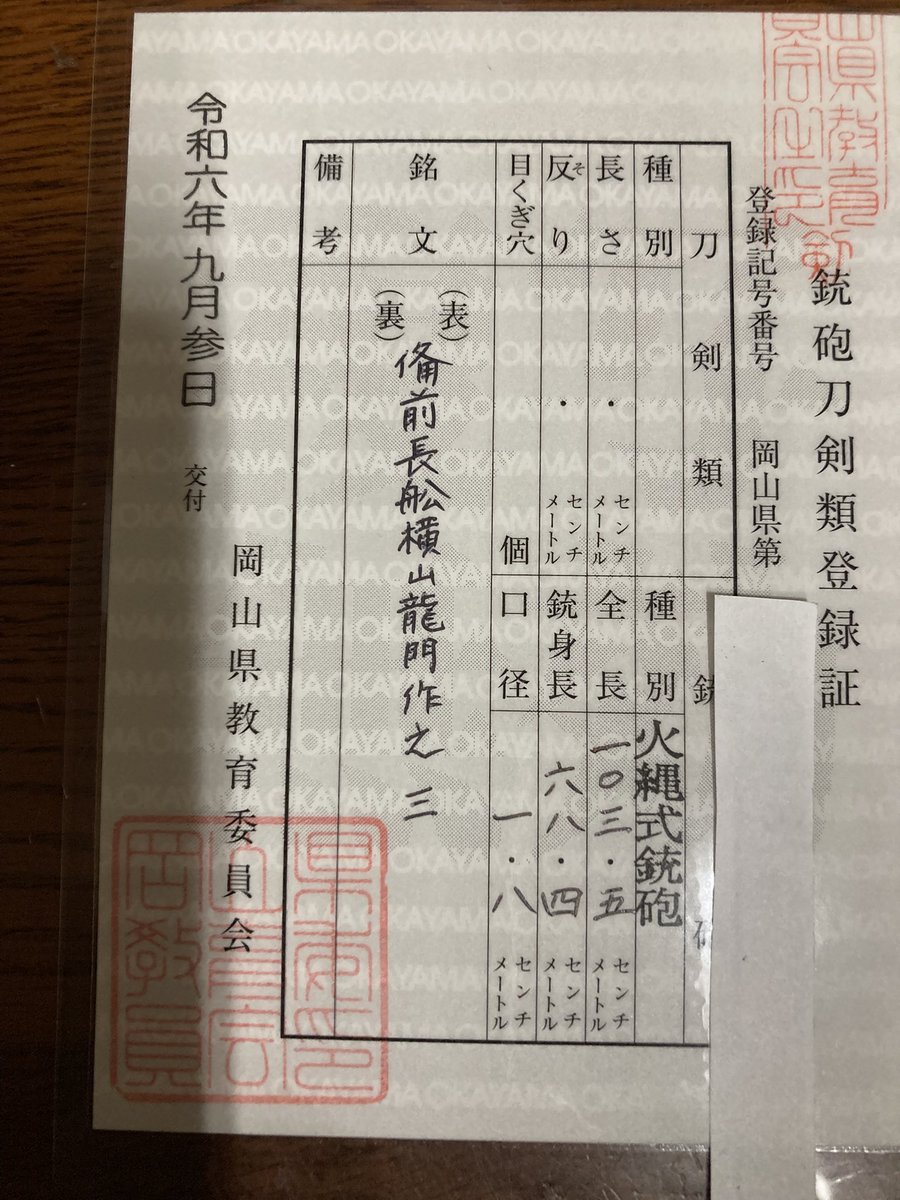 銃砲刀剣類登録証
登録記号番号 岡山県第
刀剣類
種別
長さ ・ センチメートル
反り ・ センチメートル
そ
目くぎ穴 個
種別 火縄式銃砲
全長 一〇三・五 センチメートル
銃身長 六八・四 センチメートル
口径 一・八 センチメートル
銘文
(表)
(裏)
備前長舩横山龍門作之 三
備考
令和六年九月参日 交付
岡山県教育委員会
OKAYAMA